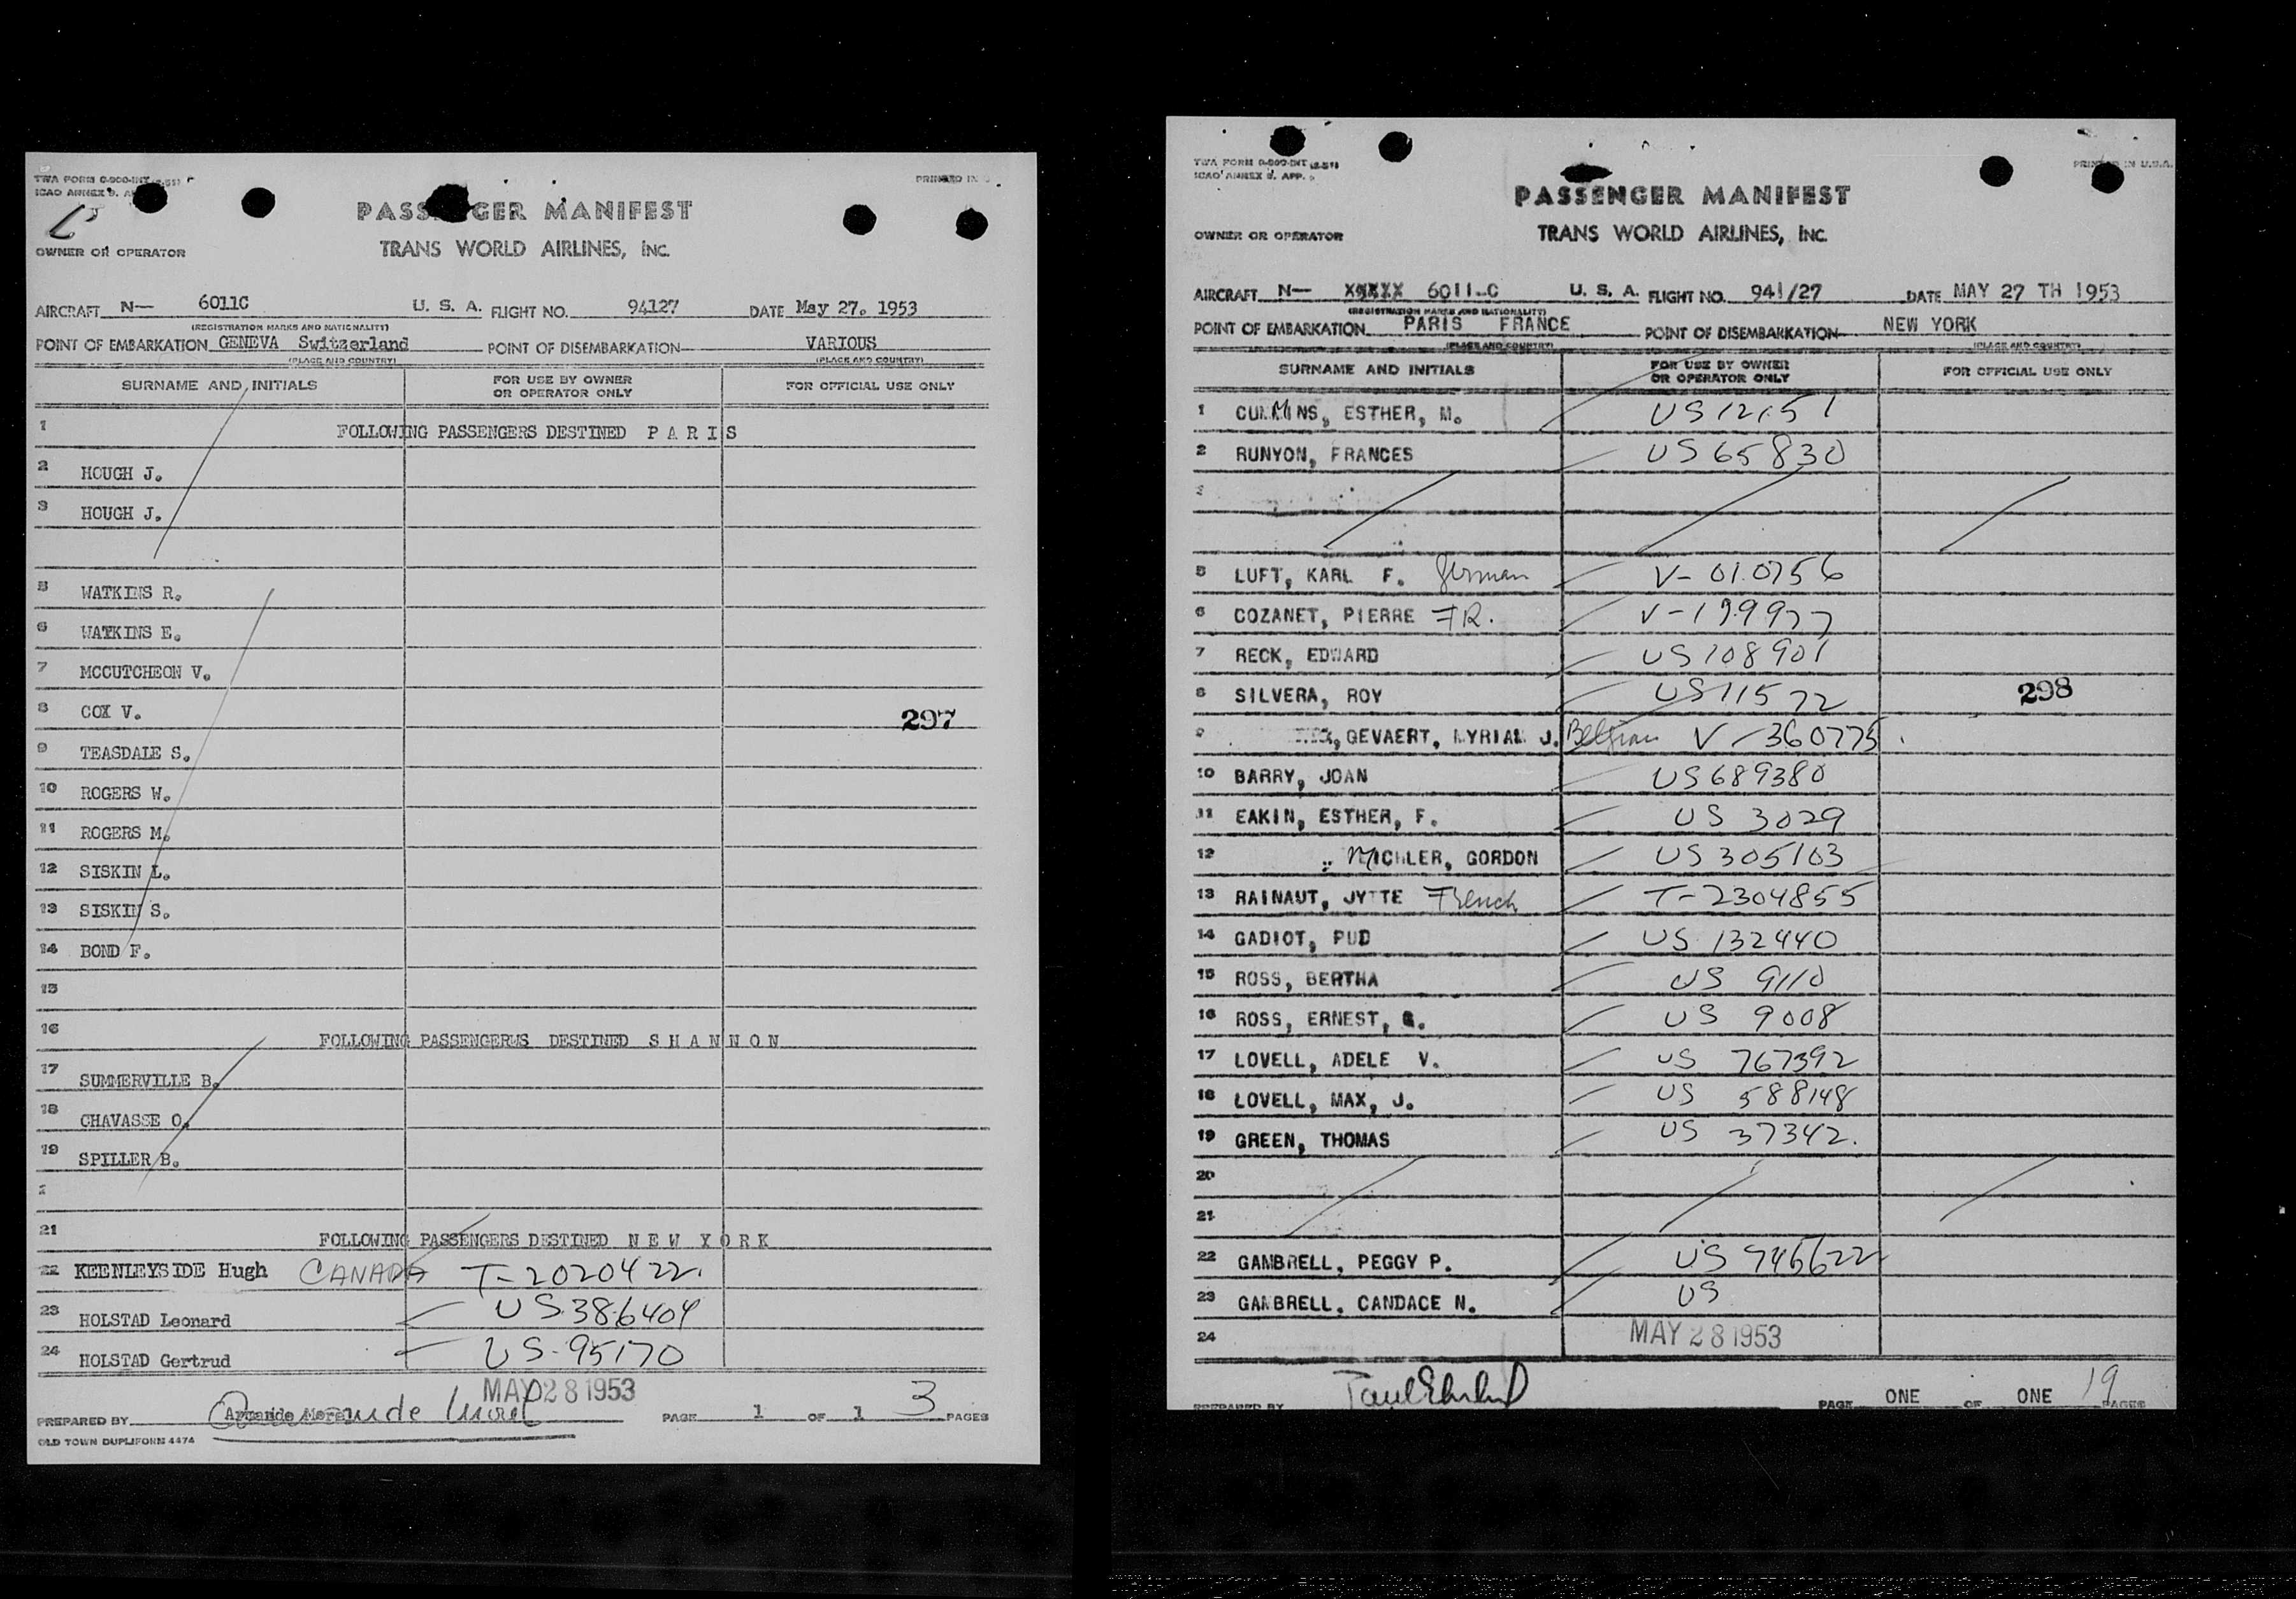 TWA FORM 0-900-INT
ICAO ANNEX 9.
PRINTED IN
PASSENGER MANIFEST
TRANS WORLD AIRLINES, INC.
OWNER OR OPERATOR
AIRCRAFT N— 6011C U. S. A. FLIGHT NO. 94127 DATE May 27. 1953
(REGISTRATION MARKS AND NATIONALITY)
POINT OF EMBARKATION GENEVA Switzerland POINT OF DISEMBARKATION VARIOUS
(PLACE AND COUNTRY) (PLACE AND COUNTRY)
SURNAME AND INITIALS FOR USE BY OWNER OR OPERATOR ONLY FOR OFFICIAL USE ONLY
1 FOLLOWING PASSENGERS DESTINED P A R I S
2 HOUGH J.
3 HOUGH J.
5 WATKINS R.
6 WATKINS E.
7 MCCUTCHEON V.
8 COX V. 297
9 TEASDALE S.
10 ROGERS W.
11 ROGERS M.
12 SISKIN L.
13 SISKIN S.
14 BOND F.
15
16 FOLLOWING PASSENGERUS DESTINED S H A N N O N
17 SUMMERVILLE B.
18 CHAVASSE O.
19 SPILLER B.
21 FOLLOWING PASSENGERS DESTINED N E W Y O R K
22 KEENLEYSIDE Hugh CANADA T-2020422.
23 HOLSTAD Leonard US 386404
24 HOLSTAD Gertrud US-95170
MAY 28 1953
PREPARED BY PAGE 1 OF 1 3 PAGES
OLD TOWN DUPLIFORM 4474
TWA FORM 0-900-INT
ICAO ANNEX 9. APP.
PRINTED IN U.S.A.
PASSENGER MANIFEST
TRANS WORLD AIRLINES, INC.
OWNER OR OPERATOR
AIRCRAFT N— XXXXX 6011-C U. S. A. FLIGHT NO. 941/27 DATE MAY 27 TH 1953
(REGISTRATION MARKS AND NATIONALITY)
POINT OF EMBARKATION PARIS FRANCE POINT OF DISEMBARKATION NEW YORK
(PLACE AND COUNTRY) (PLACE AND COUNTRY)
SURNAME AND INITIALS FOR USE BY OWNER OR OPERATOR ONLY FOR OFFICIAL USE ONLY
1 CUMMINS, ESTHER, M. US 12151
2 RUNYON, FRANCES US 65830
5 LUFT, KARL F. German V-010756
6 COZANET, PIERRE FR. V-199977
7 RECK, EDWARD US 108901
8 SILVERA, ROY US 11572 298
9 GEVAERT, MYRIAM J. Belgian V-360775
10 BARRY, JOAN US 689380
11 EAKIN, ESTHER, F. US 3029
12 MICHLER, GORDON US 305103
13 RAINAUT, JYTTE French T-2304855
14 GADIOT, PUD US 132440
15 ROSS, BERTHA US 9110
16 ROSS, ERNEST, US 9008
17 LOVELL, ADELE V. US 767392
18 LOVELL, MAX, J. US 588148
19 GREEN, THOMAS US 37342.
20
21
22 GAMBRELL, PEGGY P. US 746622
23 GAMBRELL, CANDACE N. US
24 MAY 28 1953
PREPARED BY PAGE ONE OF ONE 19 PAGES